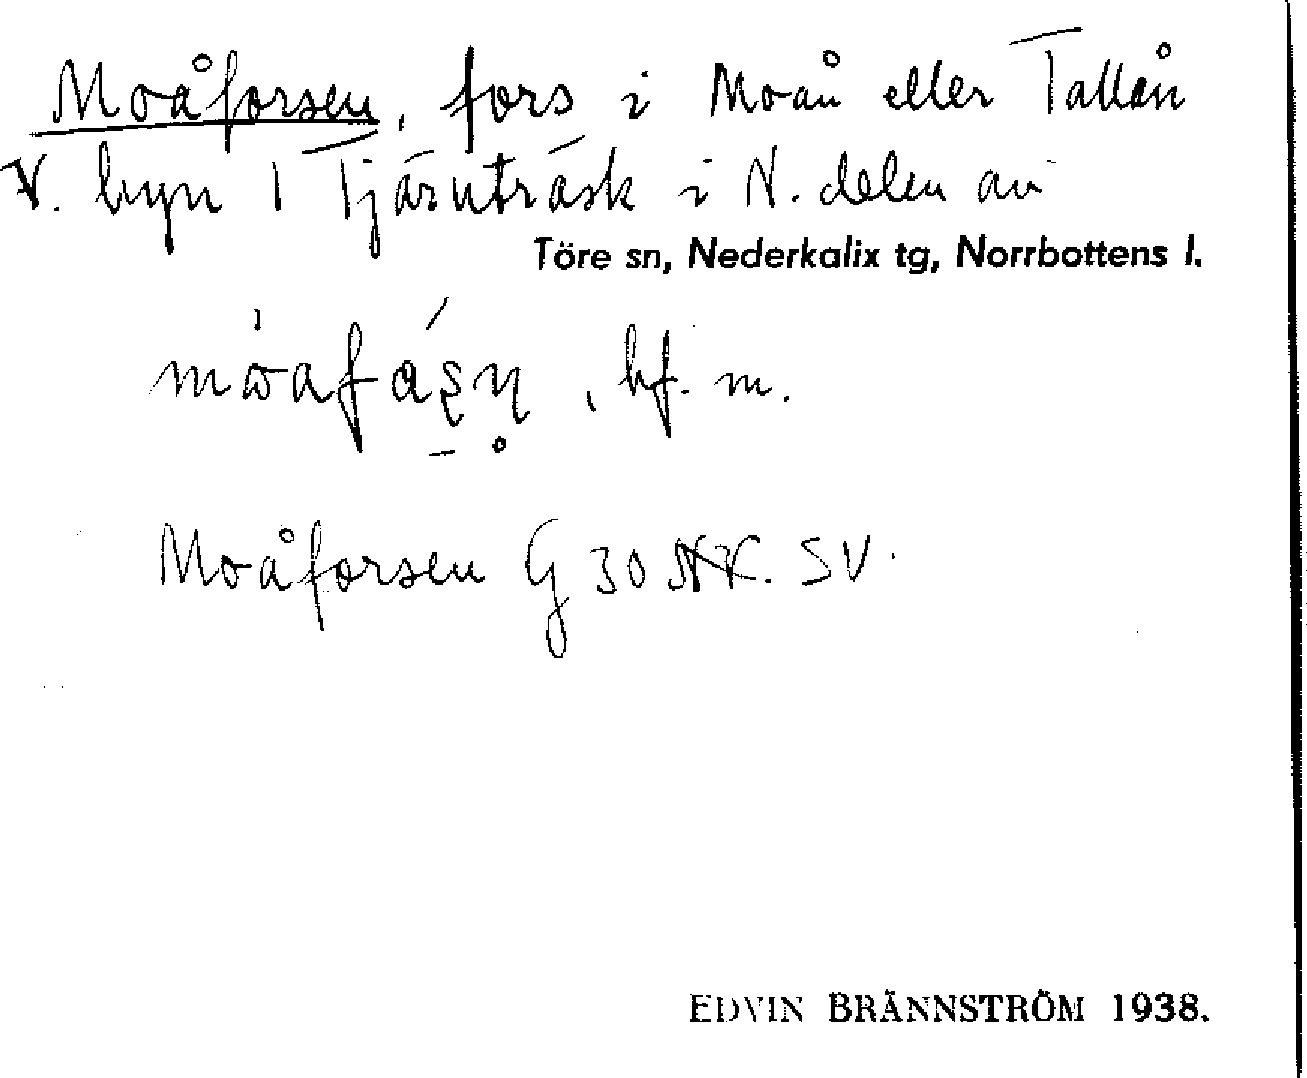 Moåforsen, fors i Moån eller Tallån
V. byn 1 Tjärnträsk i N. delen av
Töre sn, Nederkalix tg, Norrbottens l.
, bf. m.
Moåforsen G 30 SV.
EDVIN BRÄNNSTRÖM 1938.